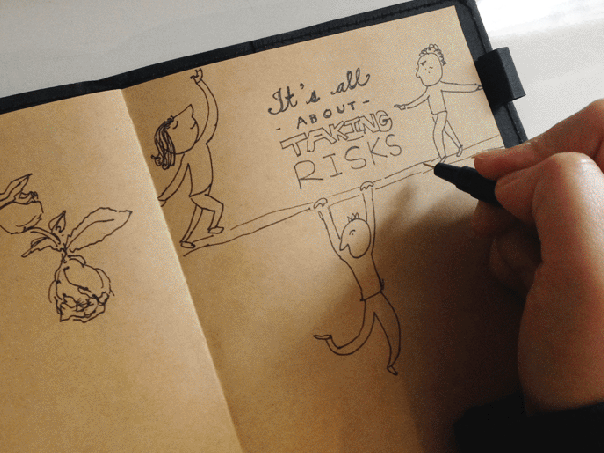 It's all
- ABOUT -
TAKING
RISKS